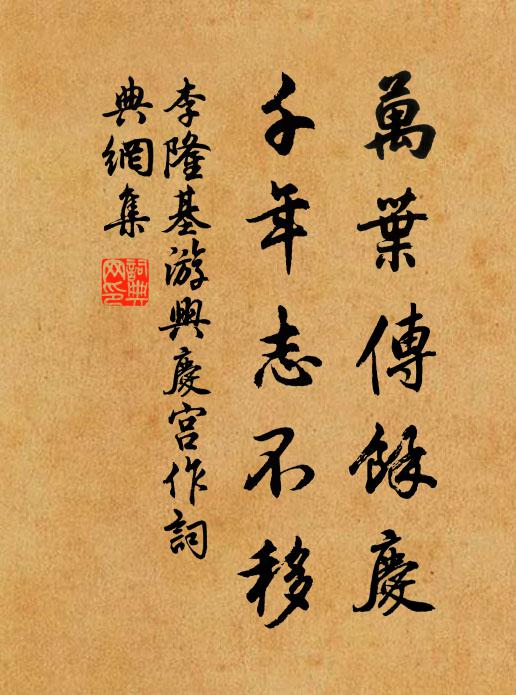 萬葉傳餘慶
千年志不移
李隆基游興慶宮作詞
典網集
詞典網印